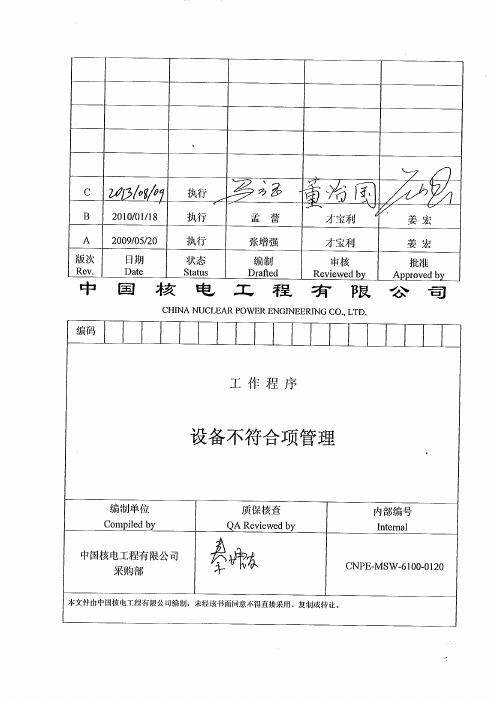 C 2013/08/09 执行
B 2010/01/18 执行 孟蕾 才宝利 姜宏
A 2009/05/20 执行 张增强 才宝利 姜宏
版次 日期 状态 编制 审核 批准
Rev. Date Status Drafted Reviewed by Approved by
中国核电工程有限公司
CHINA NUCLEAR POWER ENGINEERING CO., LTD.
编码
工作程序
设备不符合项管理
编制单位 质保核查 内部编号
Compiled by QA Reviewed by Internal
中国核电工程有限公司
采购部
CNPE-MSW-6100-0120
本文件由中国核电工程有限公司编制，未经该书面同意不得直接采用、复制或转让。